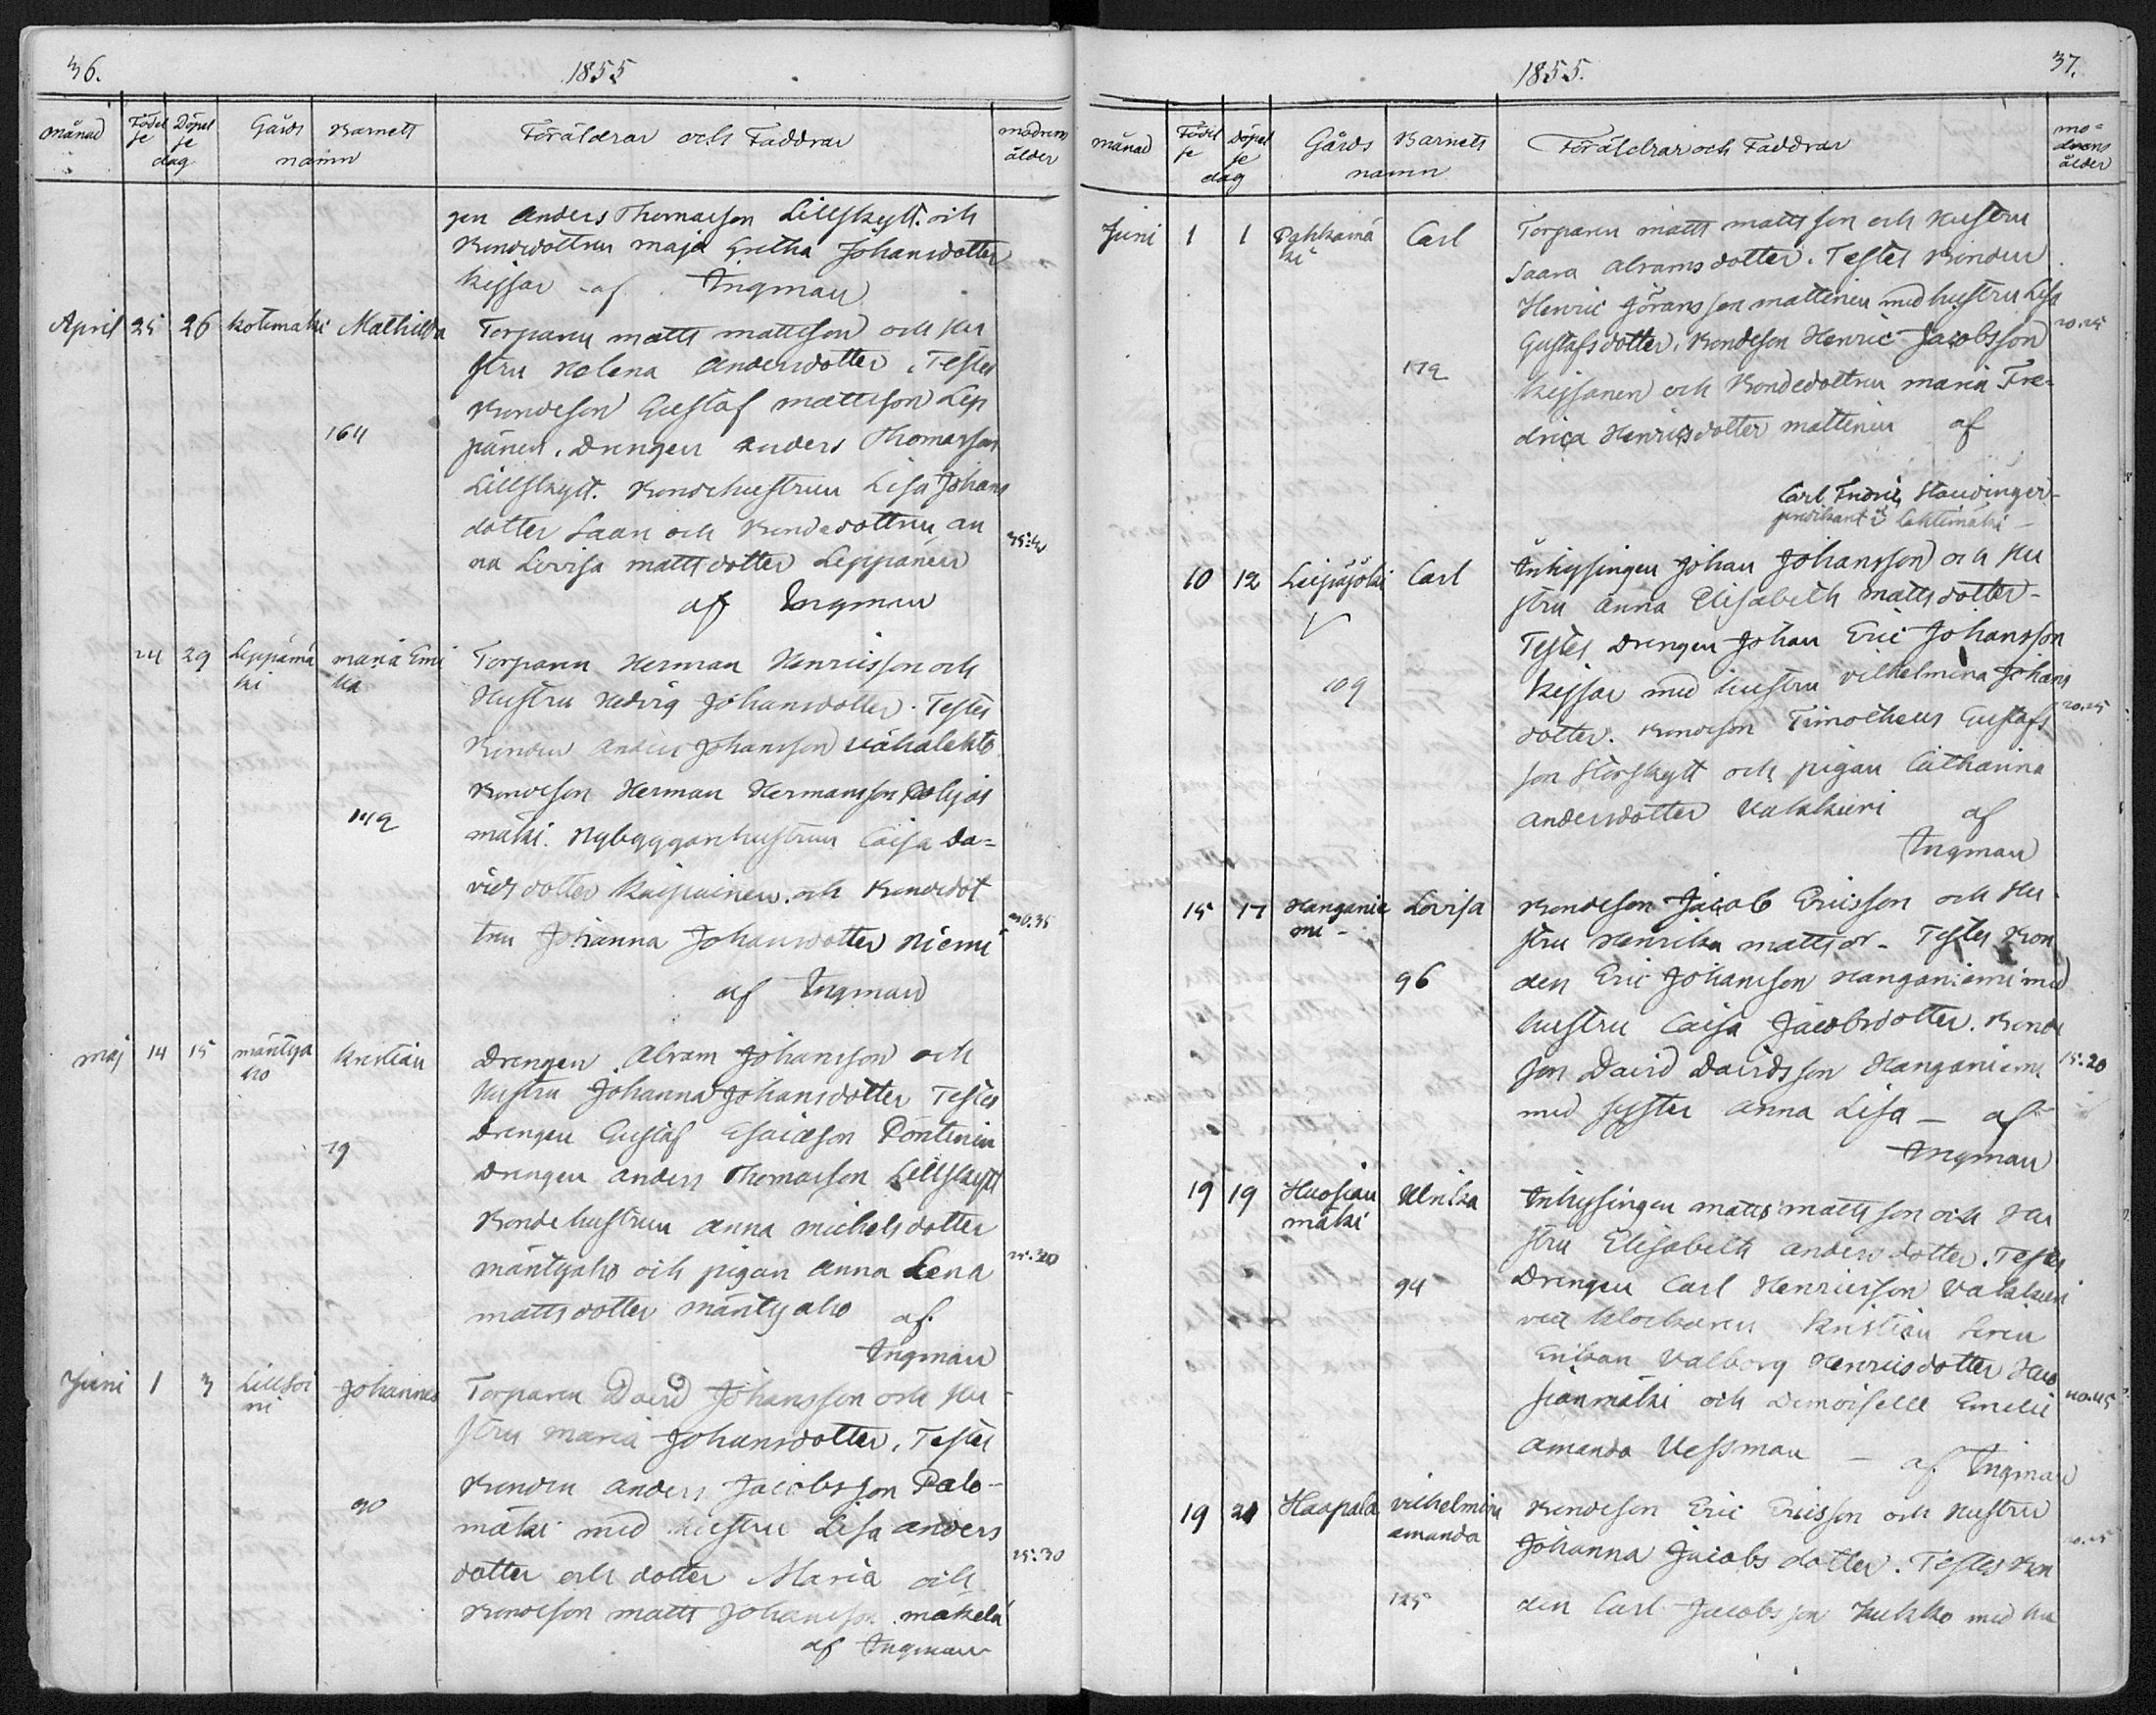 36.
1855
månad
Födel
se
Döpel
se
dag
Gårds
Barnets
namn
Föräldrar och Faddrar
modrens
ålder
gen Anders Thomasson Lillskytt. och
Bondedottren Maja Gretha Johansdotter
Kejsar af Ingman
April 25 26 Kotimaki Mathilda
Torparen Matts Mattsson och Hu
stru Helena Andersdotter. Testes
Bondeson Gustaf Mattsson Lep
pänen. Drengen Anders Thomasson
164
Lillskytt. Bondehustrun Lisa Johans
dotter Saari och Bondedottren an
na Lovisa Mattsdotter Leppänen
35:40
af Ingman
24 29 Leppämä
ki
Maria Emi
lia
Torparen Herman Henricsson och
Hustru Hedvig Johansdotter. Testes
Bonden Anders Johansson Vähälehto
Bondeson Herman Hermansson Pohjois
142
mäki. Nybyggarehustrun Caisa Da=
vidsdotter Kaipainen. och Bondedot
tren Johanna Johansdotter Niemi
30.35
af Ingman
Maj 14 15 Mäntya
ho
Kristian
Drengen Abram Johansson och
Hustru Johanna Johansdotter Testes
Drengen Gustaf Esaiasson Pöntinen
79
Drengen Anders Thomasson Lillskytt
Bondehustrun Anna Michelsdotter
Mäntyaho och pigan Anna Lena
25.30
Mattsdotter Mäntyaho af
Ingman
Juni 1 3 Lillsoi
ni
Johannes
Torparen David Johansson och Hu
stru Maria Johansdotter. Testes
Bonden Anders Jacobsson Palo-
90
mäki med hustru Lisa Anders
dotter och dotter Maria och
25:30
Bondeson Matts Johansson Mäkelä
af Ingman
1855.
37.
månad
Födel
se
Döpel
se
dag
Gårds
Barnets
namn
Föräldrar och Faddrar
mo=
drens
ålder
Juni 1 1 Pahkamä
ki
Carl
Torparen Matts Mattsson och Hustru
Saara Abramsdotter. Testes Bonden
Henric Göransson Mattinen med hustru Lisa
Gustafsdotter, Bondeson Henric Jacobsson
20.25
172
Keisanen och Bondedottren Maria Fre=
drica Henricsdotter Mattinen af
Carl Fredric Staudinger
predikant i Lehtimäki
10 12 Leipäjöki Carl
Inhysingen Johan Johansson och Hu
stru Anna Elisabeth Mattsdotter-
Testes Drengen Johan Eric Johansson
109
Kejsar med hustru Vilhelmina Johans
20.25
dotter. Bondeson Timotheus Gustafs
son Storskytt och pigan Catharina
Andersdotter Valkkieri af
Ingman
15 17 Hanganie
mi-
Lovisa
Bondeson Jacob Ericsson och Hu
stru Henrika Mattsdr- Testes Bon
96
den Eric Johansson Hanganiemi med
hustru Caisa Jacobsdotter. Bonde
son David Davidsson Hanganiemi
15:20
med syster Anna Lisa — af
Ingman
19 19 Huosian
mäki
Ulrika
Inhysingen Matts Mattsson och Hu
stru Elisabeth Andersdotter. Testes
94
Drengen Carl Henricsson Valkkieri
Kristian
Enkan Valborg Henricsdotter Huo
sianmäki och Demoiselle Emelie
40.45
Amanda Vessman — af Ingman
19 21 Haapala Vilhelmina
Amanda
Bondeson Eric Ericsson och Hustru
Johanna Jacobsdotter. Testes Bon
20.25
125
den Carl Jacobsson Kukko med hu